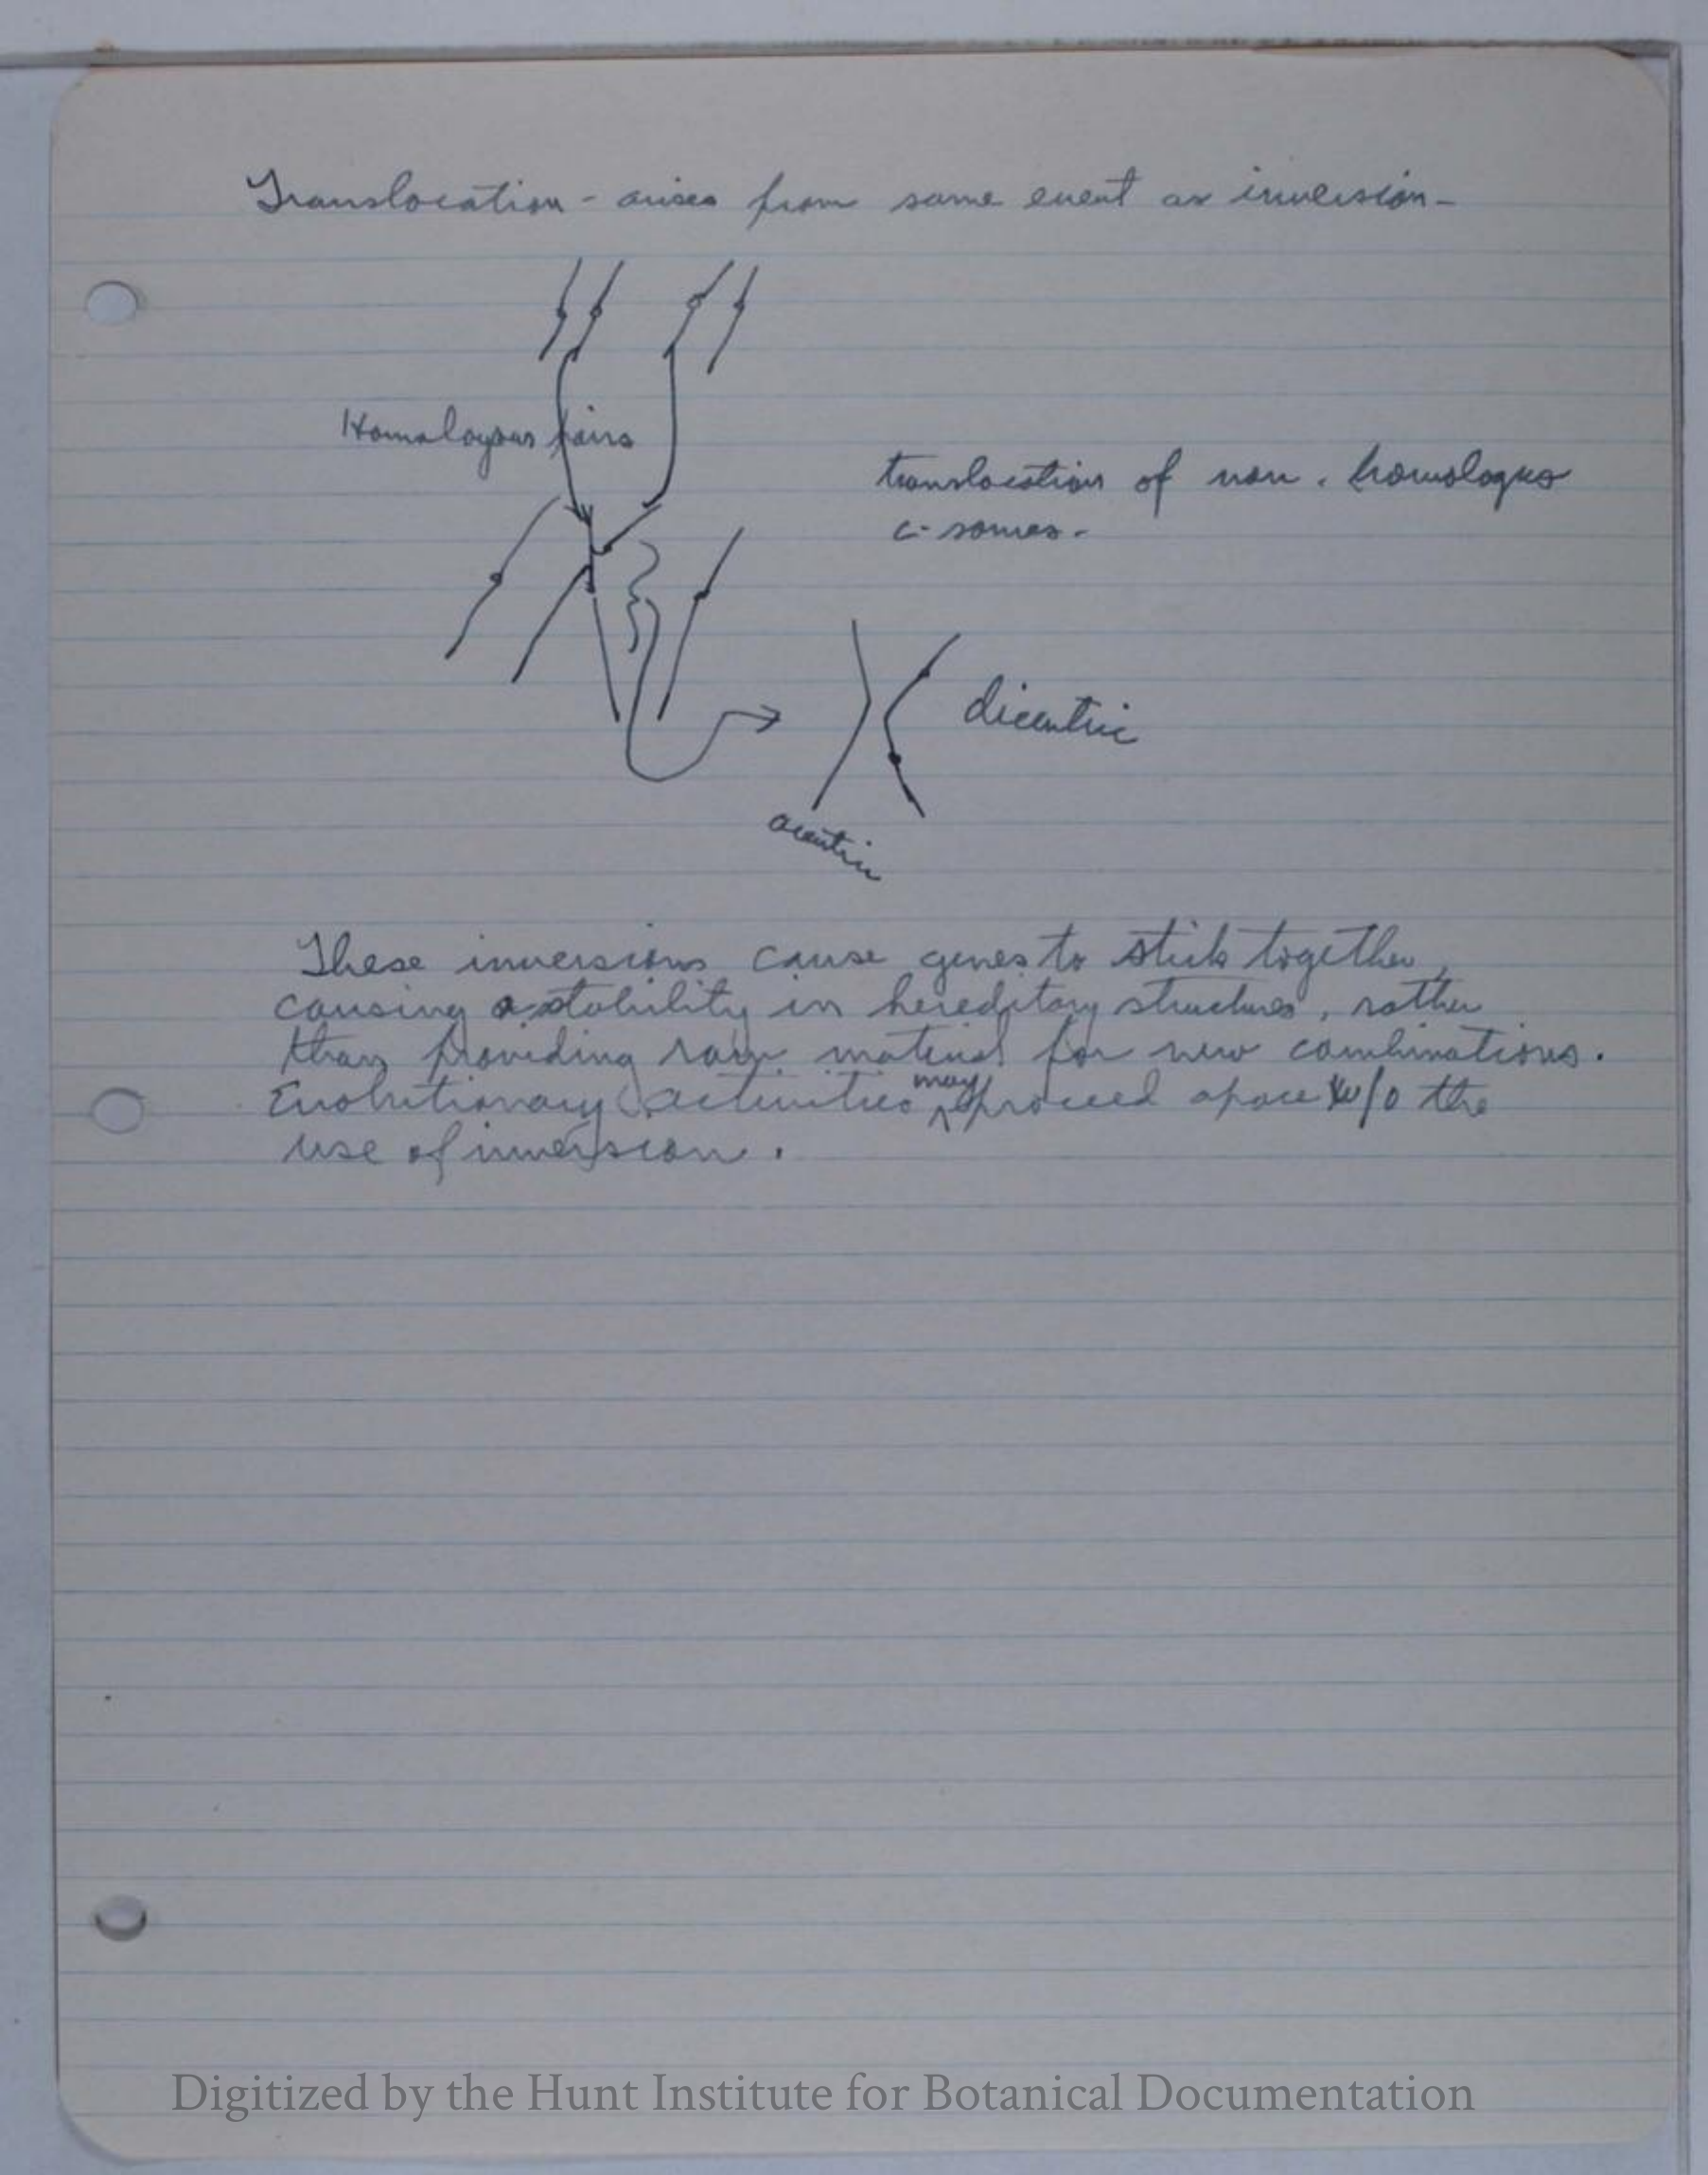 Translocation - arises from same event as inversion -
Homologous pairs
translocation of non-homologus
c-somes -
dicentric
acentric
These inversions cause genes to stick together,
causing a stability in hereditary structures, rather
than providing raw material for new combinations.
Evolutionary activities may proceed apace w/o the
use of inversion.
Digitized by the Hunt Institute for Botanical Documentation